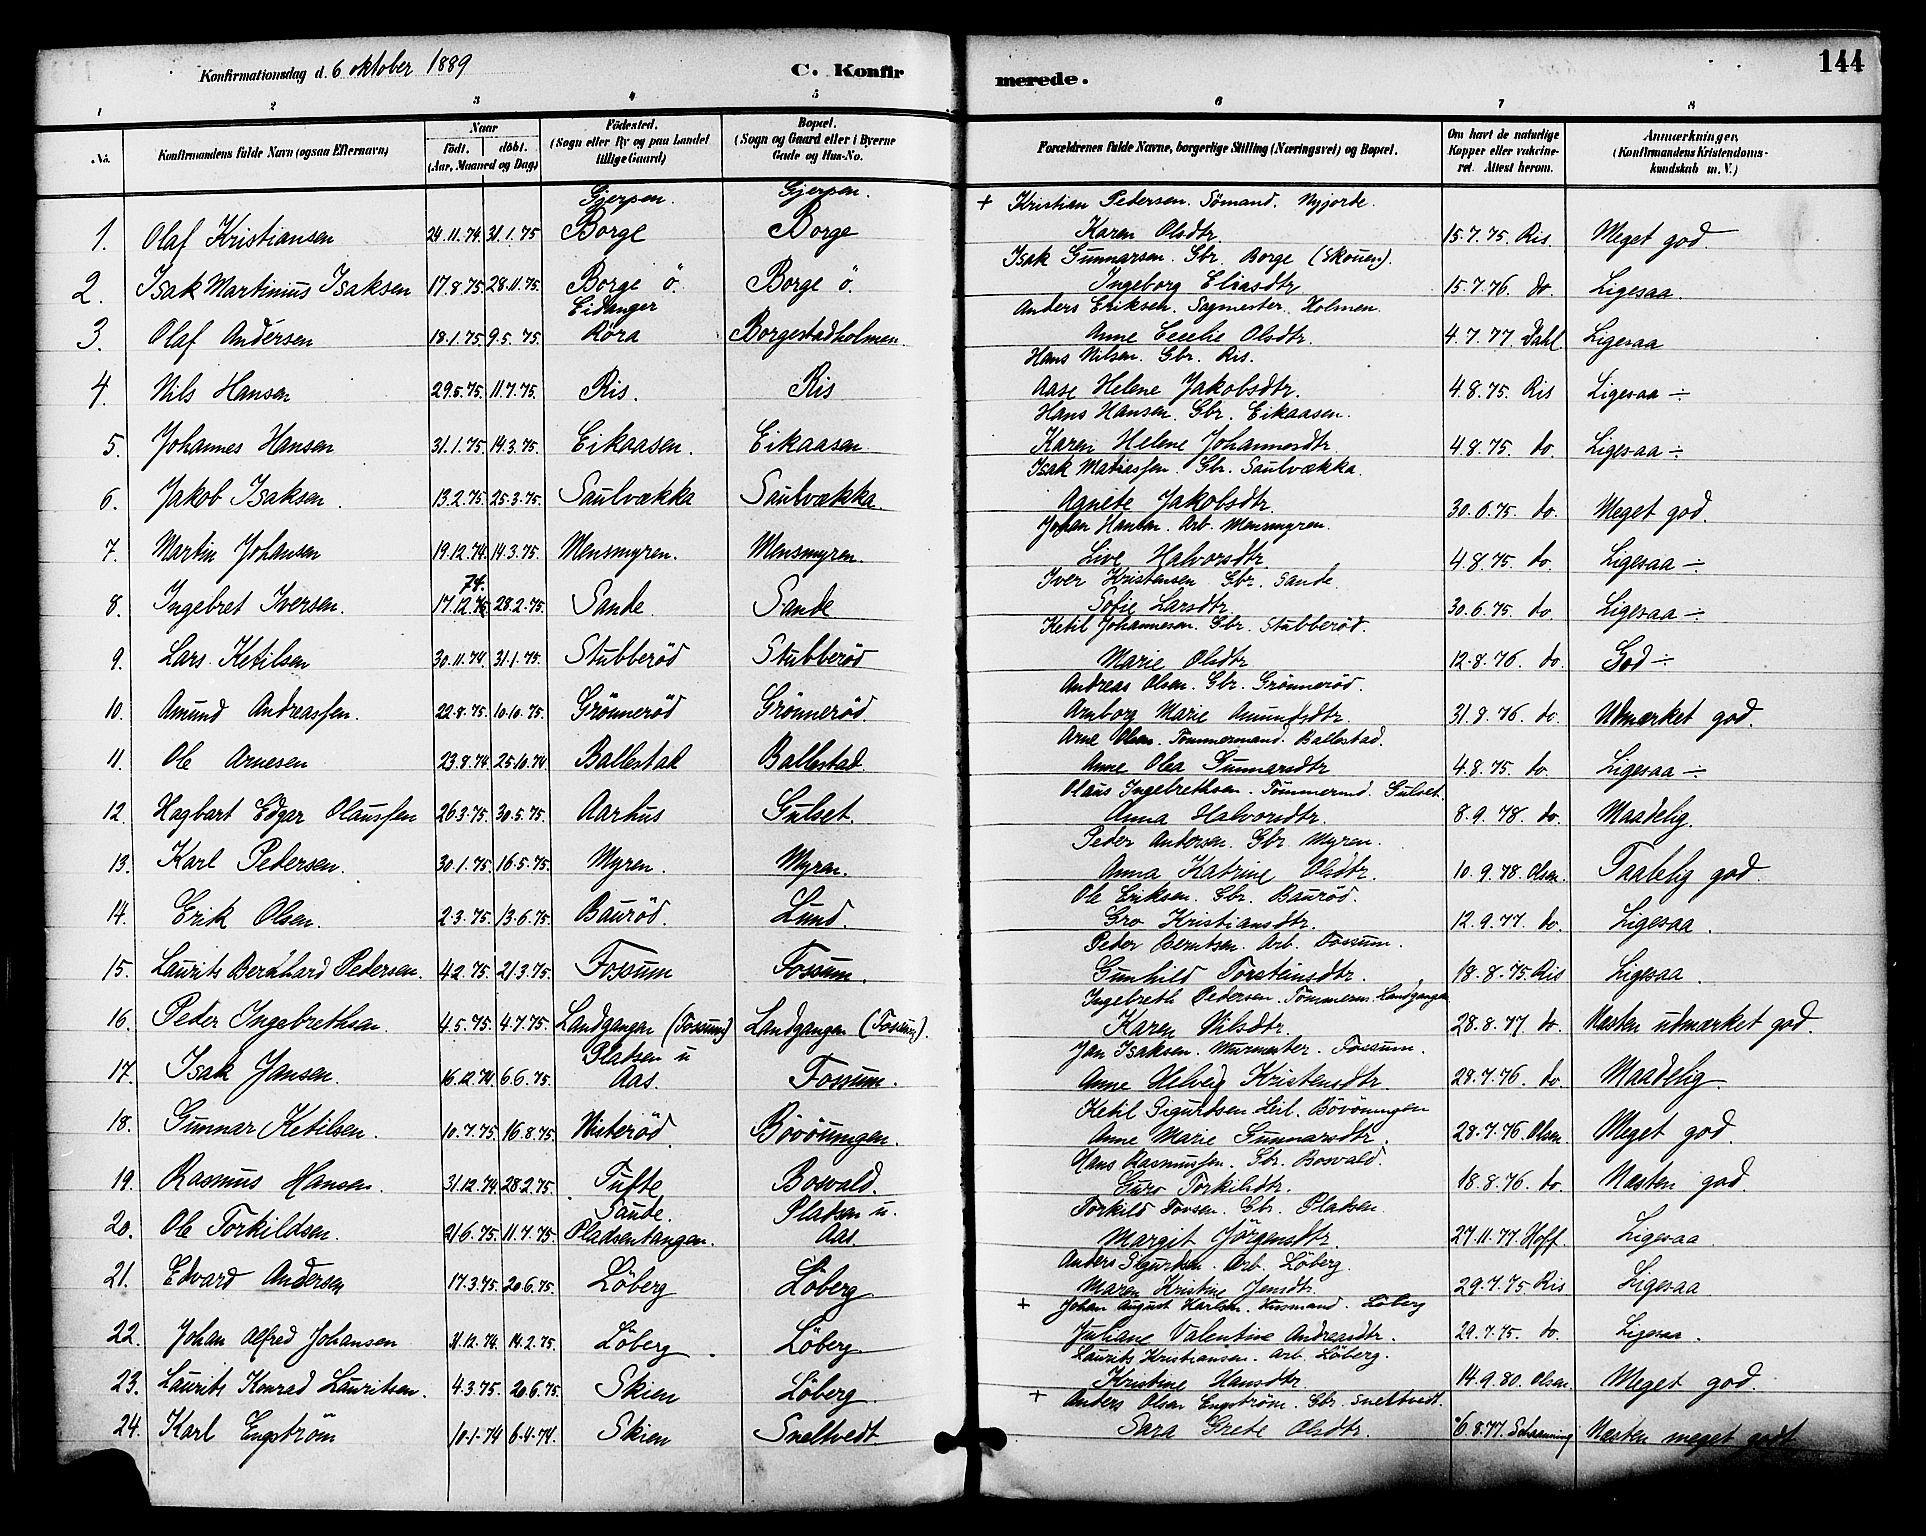 144
Konfirmationsdag d. 6 oktober 1889 C. Konfirmerede.
1 2 3 4 5 6 7 8
No. Konfirmandens fulde Navn (ogsaa Efternavn) Naar født. døbt. (Aar, Maaned og Dag) Fødested. (Sogn eller By og paa Landet tillige Gaard) Bopæl. (Sogn og Gaard eller i Byerne Gade og Hus-No. Forældrenes fulde Navne, borgerlige Stilling (Næringsvei) og Bopæl. Om havt de naturlige Kopper eller vakcineret. Attest herom. Anmærkninger. (Konfirmandens Kristendomskundskab m. V.)
Gjerpen. Gjerpen. + Kristian Pedersen. Sömand. Nyjorde.
1. Olaf Kristiansen 24.11.74. 31.1.75 Borge Borge Karen Olsdtr. 15.7.75. Ris Meget god
Isak Gunnarsen. Gbr. Borge (Skouen).
2. Isak Martinius Isaksen 17.8.75. 28.11.75. Borge ö. Borge ö. Ingeborg Eliasdtr. 15.7.76. do. Ligesaa.
Eidanger Anders Eriksen. Sagmester. Holmen.
3. Olaf Andersen 18.1.75 9.5.75 Röra Borgestadholmen. Anne Cecelie Olsdtr. 4.7.77 Dahl Ligesaa
Hans Nilsen. Gbr. Ris.
4. Nils Hansen 29.5.75. 11.7.75. Ris. Ris Aase Helene Jakobsdtr 4.8.75. Ris Ligesaa ÷
Hans Hansen. Gbr. Eikaasen.
5. Johannes Hansen 31.1.75 14.3.75. Eikaasen. Eikaasen. Karen Helene Johannesdtr 4.8.75. do. Ligesaa ÷
Isak Matiassen. Gbr. Saulvækka.
6. Jakob Isaksen. 13.2.75. 25.3.75. Saulvækka Saulvækka. Agnete Jakobsdtr. 30.6.75. do. Meget god.
Johan Hansen. Arb. Mensmyren.
7. Martin Johansen 19.12.74. 14.3.75. Mensmyren. Mensmyren. Live Halvorsdtr. 4.8.75. do. Ligesaa ÷
74. Iver Kristensen. Gbr. Sande
8. Ingebret Iversen. 17.12. 28.2.75. Sande. Sande Sofie Larsdtr. 30.6.75. do Ligesaa ÷
Ketil Johannesen. Gbr. Stubberöd.
9. Lars Ketilsen 30.11.74 31.1.75. Stubberöd Stubberöd Marie Olsdtr 12.8.76. do God ÷
Andreas Olsen. Gbr. Grönneröd.
10. Amund Andreassen. 22.8.75. 10.10.75. Grönneröd Grönneröd. Amborg Marie Amundsdtr. 31.8.76. do. Udmærket god.
Arne Olsen. Tömmermand. Ballestad.
11. Ole Arnesen 23.8.74 25.10.74 Ballestad Ballestad. Anne Olea Gunnarsdtr 4.8.75. do. Ligesaa ÷
Olaus Ingebrethsen. Tömmermd. Gulset.
12. Hagbart Edgar Olaussen 26.3.75. 30.5.75. Aarhus Gulset. Anna Halvorsdtr. 8.9.78. do. Maadelig.
Peder Andersen. Gbr. Myren.
13. Karl Pedersen. 30.1.75. 16.5.75. Myren. Myren. Anna Katrine Olsdtr. 10.9.78. Olsen. Taalelig god.
Ole Eriksen. Gbr. Bauröd.
14. Erik Olsen. 2.3.75. 13.6.75. Bauröd. Lund. Gro Kristiansdtr. 12.9.77. do Ligesaa.
Peder Berntsen. Arb. Fossum.
15. Laurits Bernhard Pedersen. 4.2.75. 21.3.75. Fossum Fossum. Gunhild Torsteinsdtr. 18.8.75 Ris Ligesaa.
Ingebreth Pedersen. Tömmerm. Landgangen
16. Peder Ingebrethsen. 4.5.75. 4.7.75. Landgangen (Fossum) Landgangen (Fossum). Karen Nilsdtr. 28.8.77 do. Næsten udmærket god.
Pladsen u Jan Isaksen. Murmester. Fossum.
17. Isak Jansen. 16.12.74. 6.6.75. Aas. Fossum. Anne Helvig Kristensdtr. 28.7.76. do Maadelig
Ketil Sigurdsen Leil. Bövöningen
18. Gunnar Ketilsen. 10.7.75. 16.8.75. Nisteröd. Bövöuingen. Anne Marie Gunnarsdtr. 28.7.76. Olsen. Meget god.
Hans Rasmussen. Gbr. Bosvald.
19. Rasmus Hansen. 31.12.74 28.2.75. Tufte Bosvald. Guro Torkildtr. 18.8.76. do. Næsten god.
Saude. Pladsen u. Torkild Tovsen. Gbr. Pladsen
20. Ole Torkildsen. 21.6.75. 11.7.75. Pladsentangen. Aas Margit Jörgensdtr. 27.11.77. Hoff. Ligesaa.
Anders Sigurdsen. Arb. Löberg.
21. Edvard Andersen 17.3.75. 20.6.75. Löberg Löberg Maren Kristine Jensdtr. 29.7.75 Ris Ligesaa
+ Johan August Karlsen. Husmand. Löberg
22. Johan Alfred Johansen 11.12.74. 14.2.75. Löberg. Löberg. Juliane Valentine Andreasdtr. 29.7.75. do. Ligesaa.
Laurits Kristiansen. Arb. Löberg.
23. Laurits Konrad Lauritsen. 4.3.75. 20.6.75. Skien Löberg. Kristine Hansdtr. 14.9.80. Olsen. Meget god.
+ Anders Olsen Engström. Gbr. Sneltvedt.
24. Karl Engström 10.1.74 6.4.74. Skien Sneltvedt. Sara Grete Olsdtr. 6.8.77. Schaanning Næsten meget godt